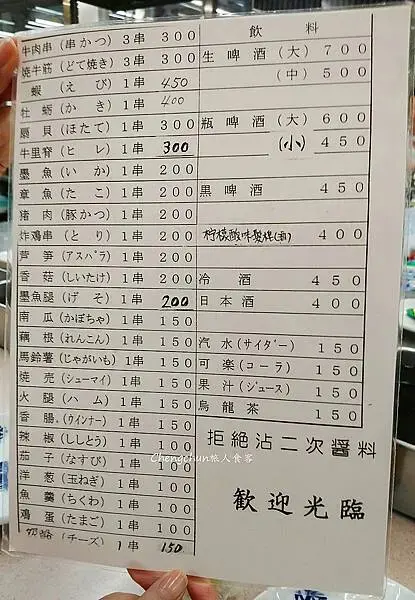 牛肉串(串かつ) 3串 300
焼牛筋(どて焼き) 3串 300
蝦(えび) 1串 450
牡蛎(かき) 1串 400
扇貝(ほたて) 1串 300
牛里脊(ヒレ) 1串 300
墨魚(いか) 1串 200
章魚(たこ) 1串 200
猪肉(豚かつ) 1串 200
炸鶏串(とり) 1串 200
芦笋(アスパラ) 1串 200
香菇(しいたけ) 1串 200
墨魚腿(げそ) 1串 200
南瓜(かぼちゃ) 1串 150
藕根(れんこん) 1串 150
馬鈴薯(じゃがいも) 1串 150
焼売(シューマイ) 1串 150
火腿(ハム) 1串 150
香腸(ウインナー) 1串 100
辣椒(ししとう) 1串 100
茄子(なすび) 1串 100
洋葱(玉ねぎ) 1串 100
魚羹(ちくわ) 1串 100
鶏蛋(たまご) 1串 100
奶酪(チーズ) 1串 150
飲料
生啤酒(大) 700
(中) 500
瓶啤酒(大) 600
(小) 450
黒啤酒 450
柠檬酸味 400
冷酒 450
日本酒 400
汽水(サイダー) 150
可楽(コーラ) 150
果汁(ジュース) 150
烏龍茶 150
拒絶沾二次醤料
歓迎光臨
Chengchun旅人食客